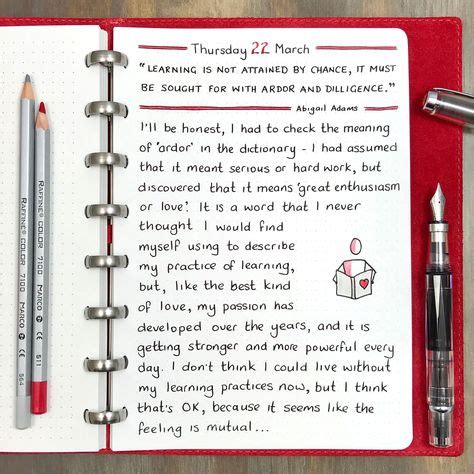 Thursday 22 March
"LEARNING IS NOT ATTAINED BY CHANCE, IT MUST
BE SOUGHT FOR WITH ARDOR AND DILLIGENCE."
Abigail Adams
I'll be honest, I had to check the meaning
of 'ardor' in the dictionary - I had assumed
that it meant serious or hard work, but
discovered that it means 'great enthusiasm
or love'. It is a word that I never
thought I would find
myself using to describe
my practice of learning,
but, like the best kind
of love, my passion has
developed over the years, and it is
getting stronger and more powerful every
day. I don't think I could live without
my learning practices now, but I think
that's OK, because it seems like the
feeling is mutual...
RAFFINÉ COLOR 7100 MARCO CE 564
RAFFINÉ COLOR 7100 MARCO CE 511